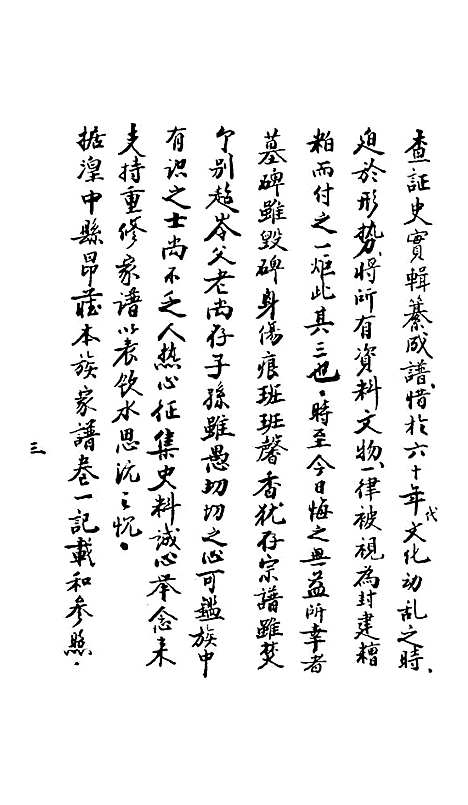 查証史實輯纂成譜、惜於六十年代文化初乱之時、
迫於形勢、將所有資料文物、一律被視為封建糟
粕而付之一炬此其三也。時至今日悔之無益所幸者
墓碑雖毀碑身傷痕班班馨香犹存宗譜雖焚
个别趂岺父老尚存子孫雖愚切切之心可鑑族中
有识之士尚不乏人热心征集史料誠心举念来
支持重修家譜以表饮水思沅之忱。
据湟中縣昂藏本族家譜卷一記載和参照。
三